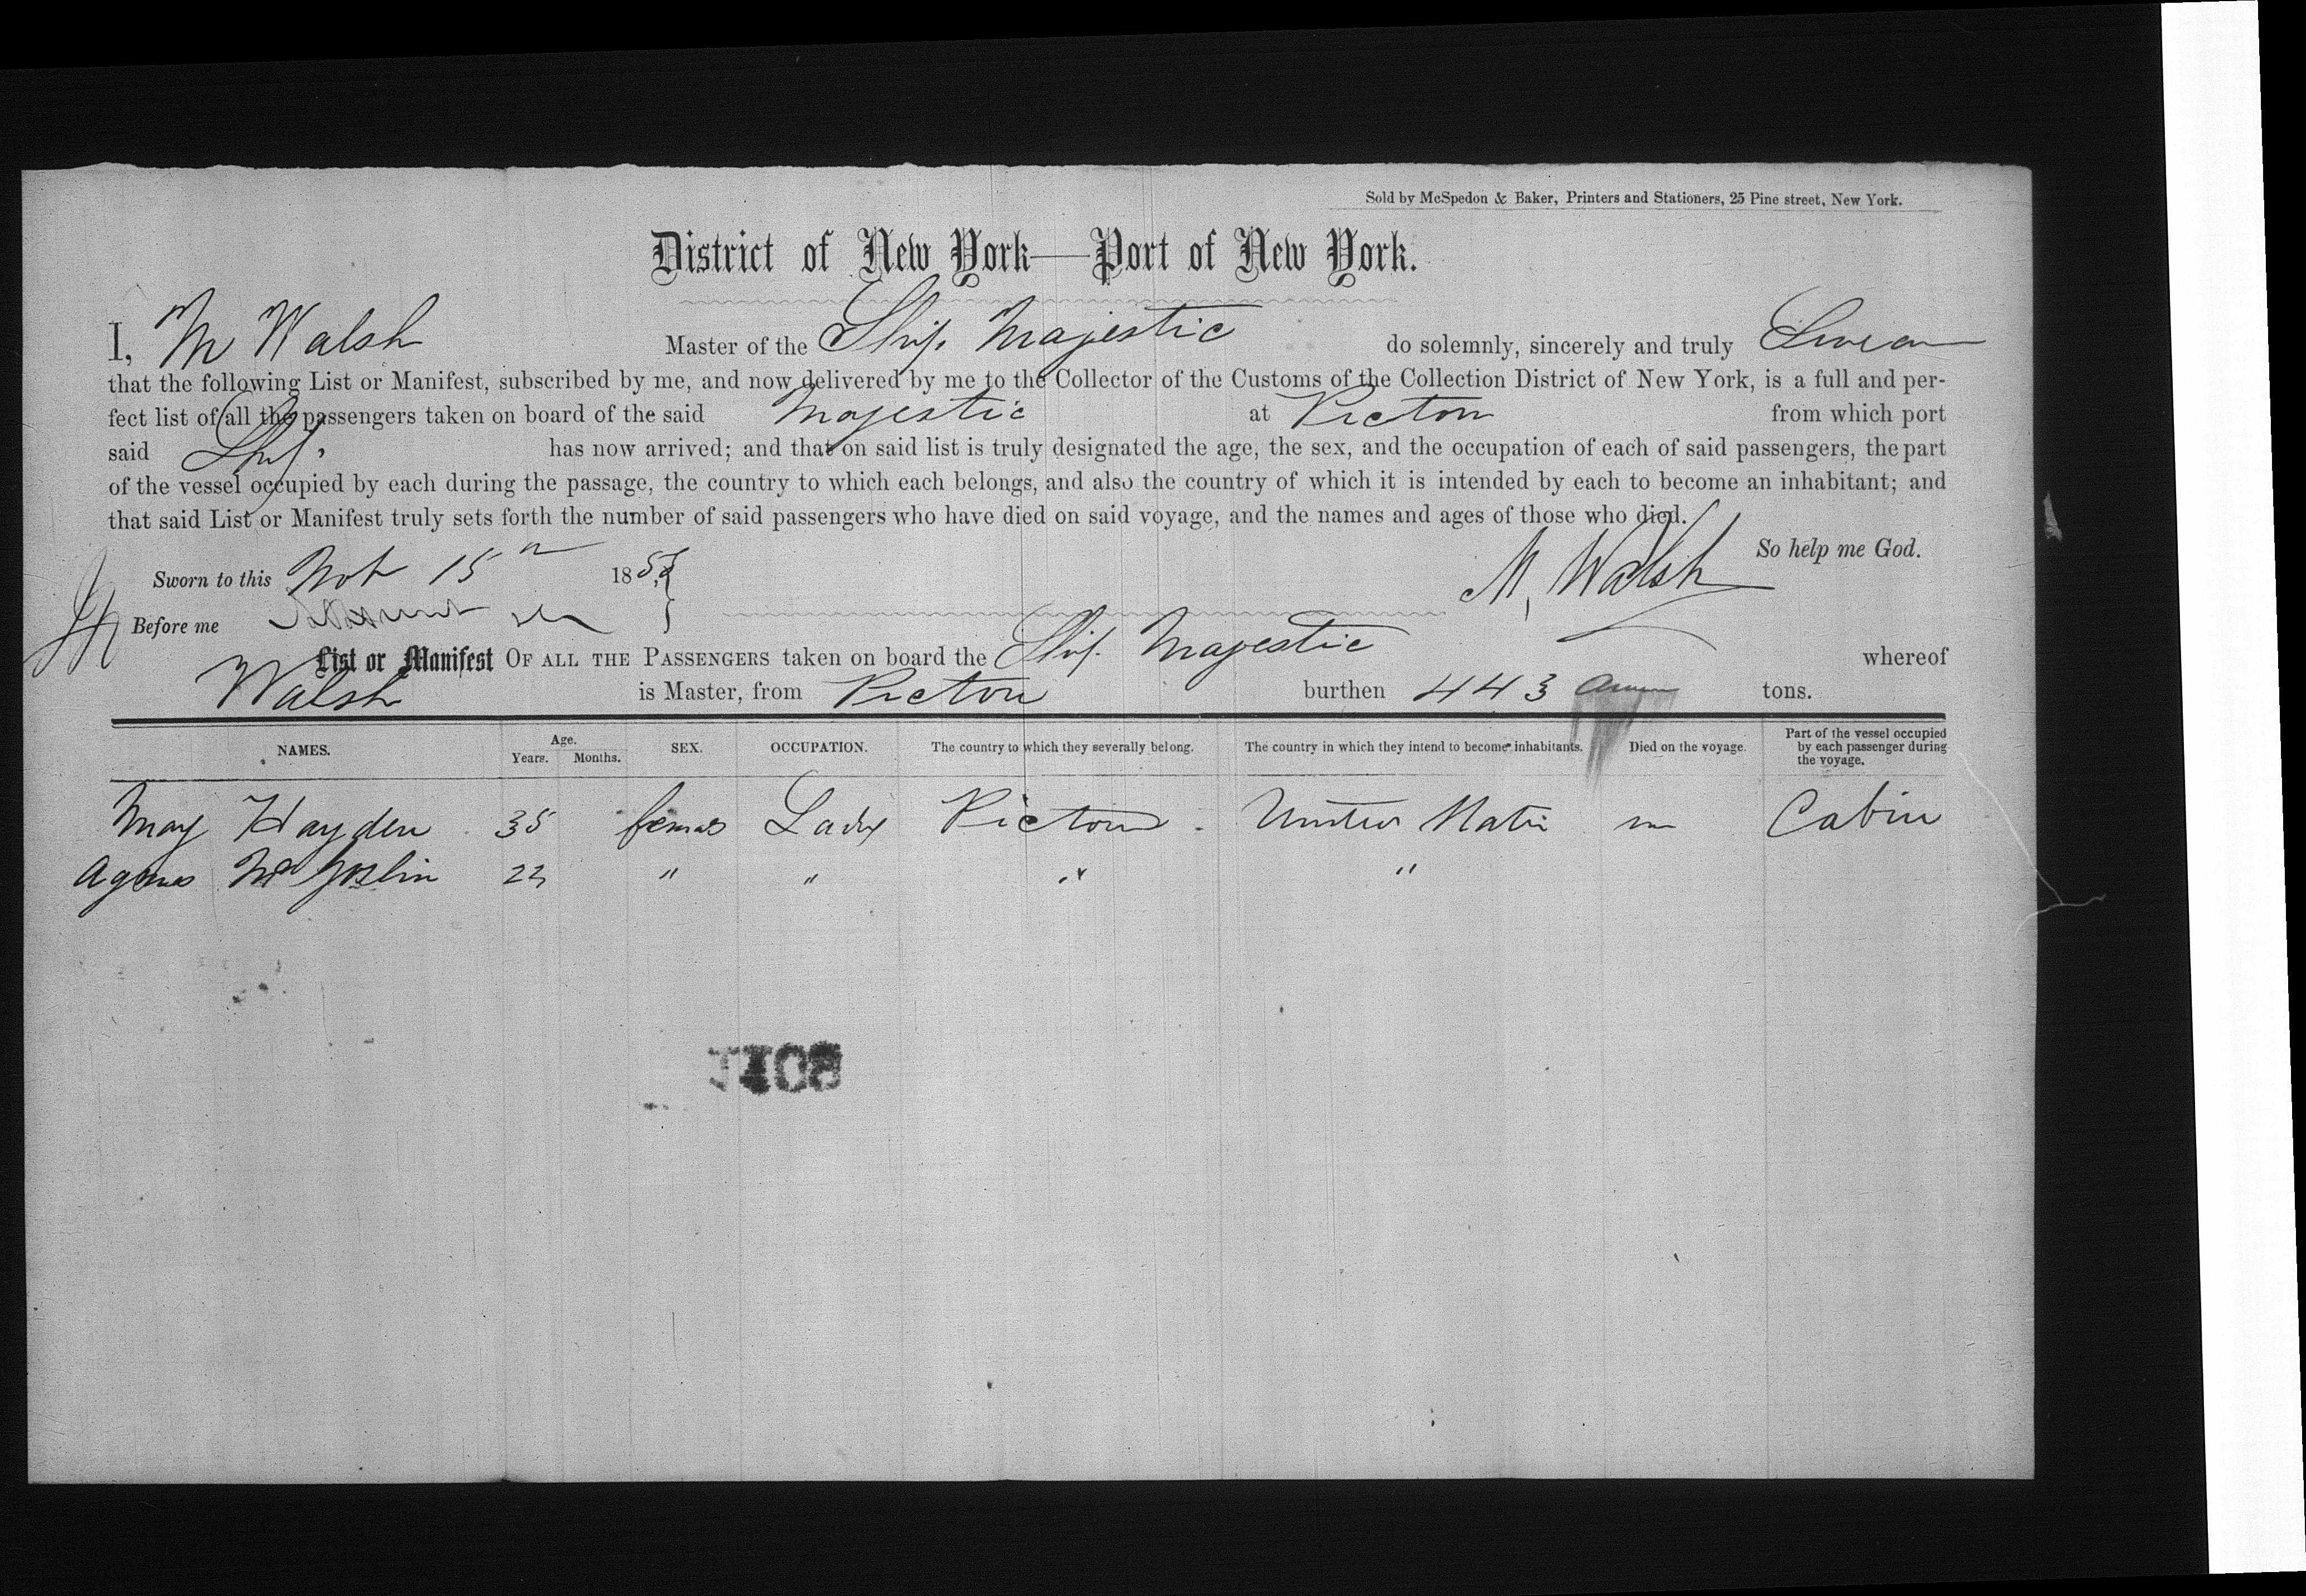 Sold by McSpedon & Baker, Printers and Stationers, 25 Pine street, New York.
District of New York—Port of New York.
I, M Walsh Master of the Ship Majestic do solemnly, sincerely and truly Swear
that the following List or Manifest, subscribed by me, and now delivered by me to the Collector of the Customs of the Collection District of New York, is a full and per-
fect list of all the passengers taken on board of the said Majestic at Picton from which port
said Ship has now arrived; and that on said list is truly designated the age, the sex, and the occupation of each of said passengers, the part
of the vessel occupied by each during the passage, the country to which each belongs, and also the country of which it is intended by each to become an inhabitant; and
that said List or Manifest truly sets forth the number of said passengers who have died on said voyage, and the names and ages of those who died.
So help me God.
Sworn to this 15 18 M. Walsh
Before me
List or Manifest OF ALL THE PASSENGERS taken on board the Ship Majestic whereof
Walsh is Master, from Picton burthen 443 tons.
NAMES. Age. Years. Months. SEX. OCCUPATION. The country to which they severally belong. The country in which they intend to become inhabitants. Died on the voyage. Part of the vessel occupied by each passenger during the voyage.
May Hayden 35 female Lady Picton United States Cabin
Agnes 22 " " " "